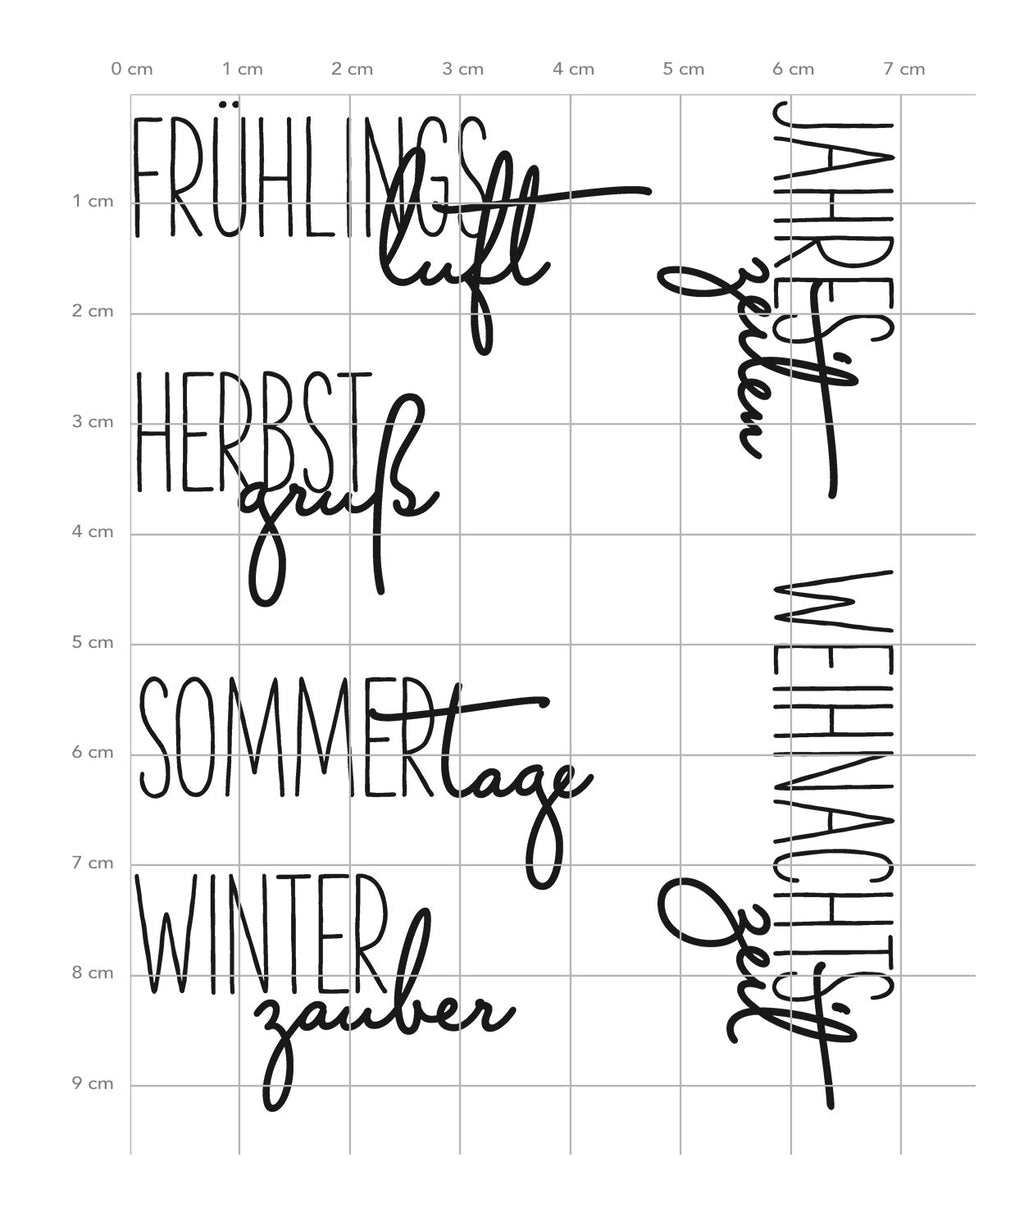 0 cm 1 cm 2 cm 3 cm 4 cm 5 cm 6 cm 7 cm
1 cm
2 cm
3 cm
4 cm
5 cm
6 cm
7 cm
8 cm
9 cm
FRÜHLINGS
luft
HERBST
gruß
SOMMER
tage
WINTER
zauber
JAHRES
zeiten
WEIHNACHTS
zeit